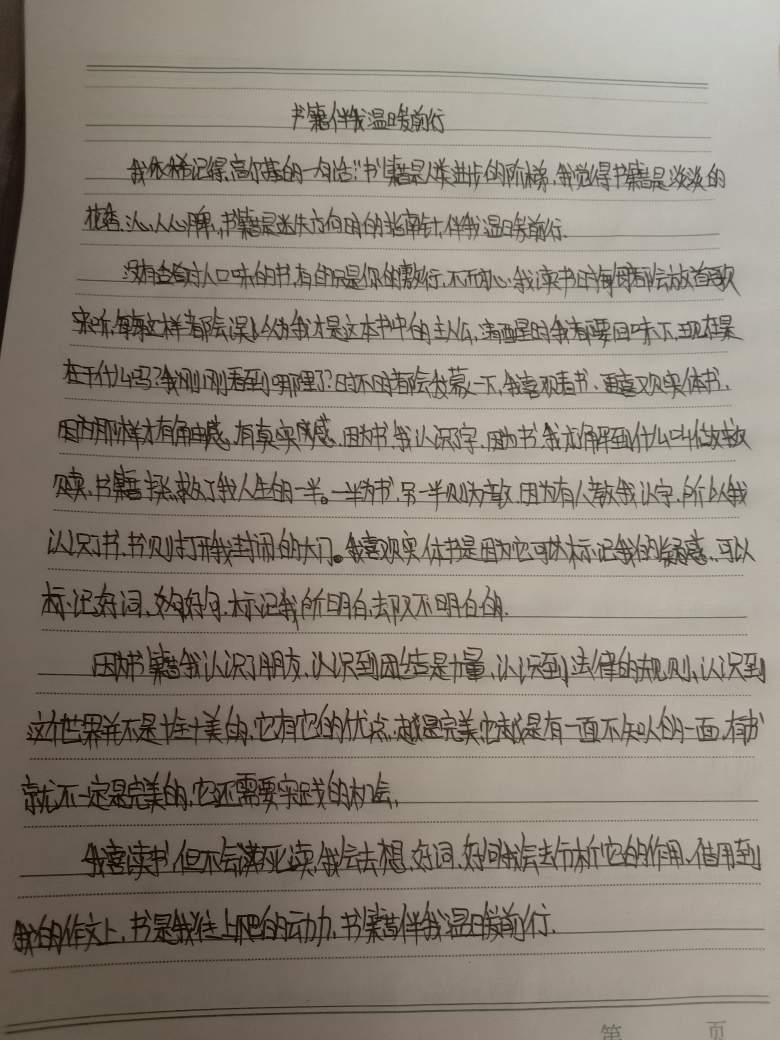 书籍伴我温暖前行
我依稀记得,高尔基的一句话:"书籍是人类进步的阶梯,我觉得书籍是淡淡的
花香,沁人心脾,书籍是迷失方向时的指南针,伴我温暖前行.
没有查对人口味的书,有的只是你的敷衍,不耐心.我读书时每每都会放首歌
来听,每每这样都会误以为我才是这本书中的主人公,清醒时我都要回味下,现在是
在干什么吗?我刚刚看到哪里了?时不时都会发蒙一下,我喜欢看书、更喜欢实体书,
因为那样才有角由感,有真实感.因为书,我认识了字,因为书,我才解到什么叫做救
赎,书籍拯救了我人生的一半。一半为书,另一半则为教,因为有人教我认字,所以我
认识了书,书则打开我封闭的大门。我喜欢实体书是因为它可以标记我的疑惑,可以
标记好词、好句,标记我所明白,却又不明白的.
因为书籍我认识了朋友,认识到团结是力量,认识到法律的规则,认识到
这个世界并不是十全十美的,它有它的优点,越是完美它越是有一面不为人知的一面,有书
就不一定是完美的,它还需要实践的机会,
我喜读书,但不会满死读,我会去想,好词、好句我会去分析它的作用,借用到
我的作文上,书是我往上爬的动力,书籍伴我温暖前行.
第 页